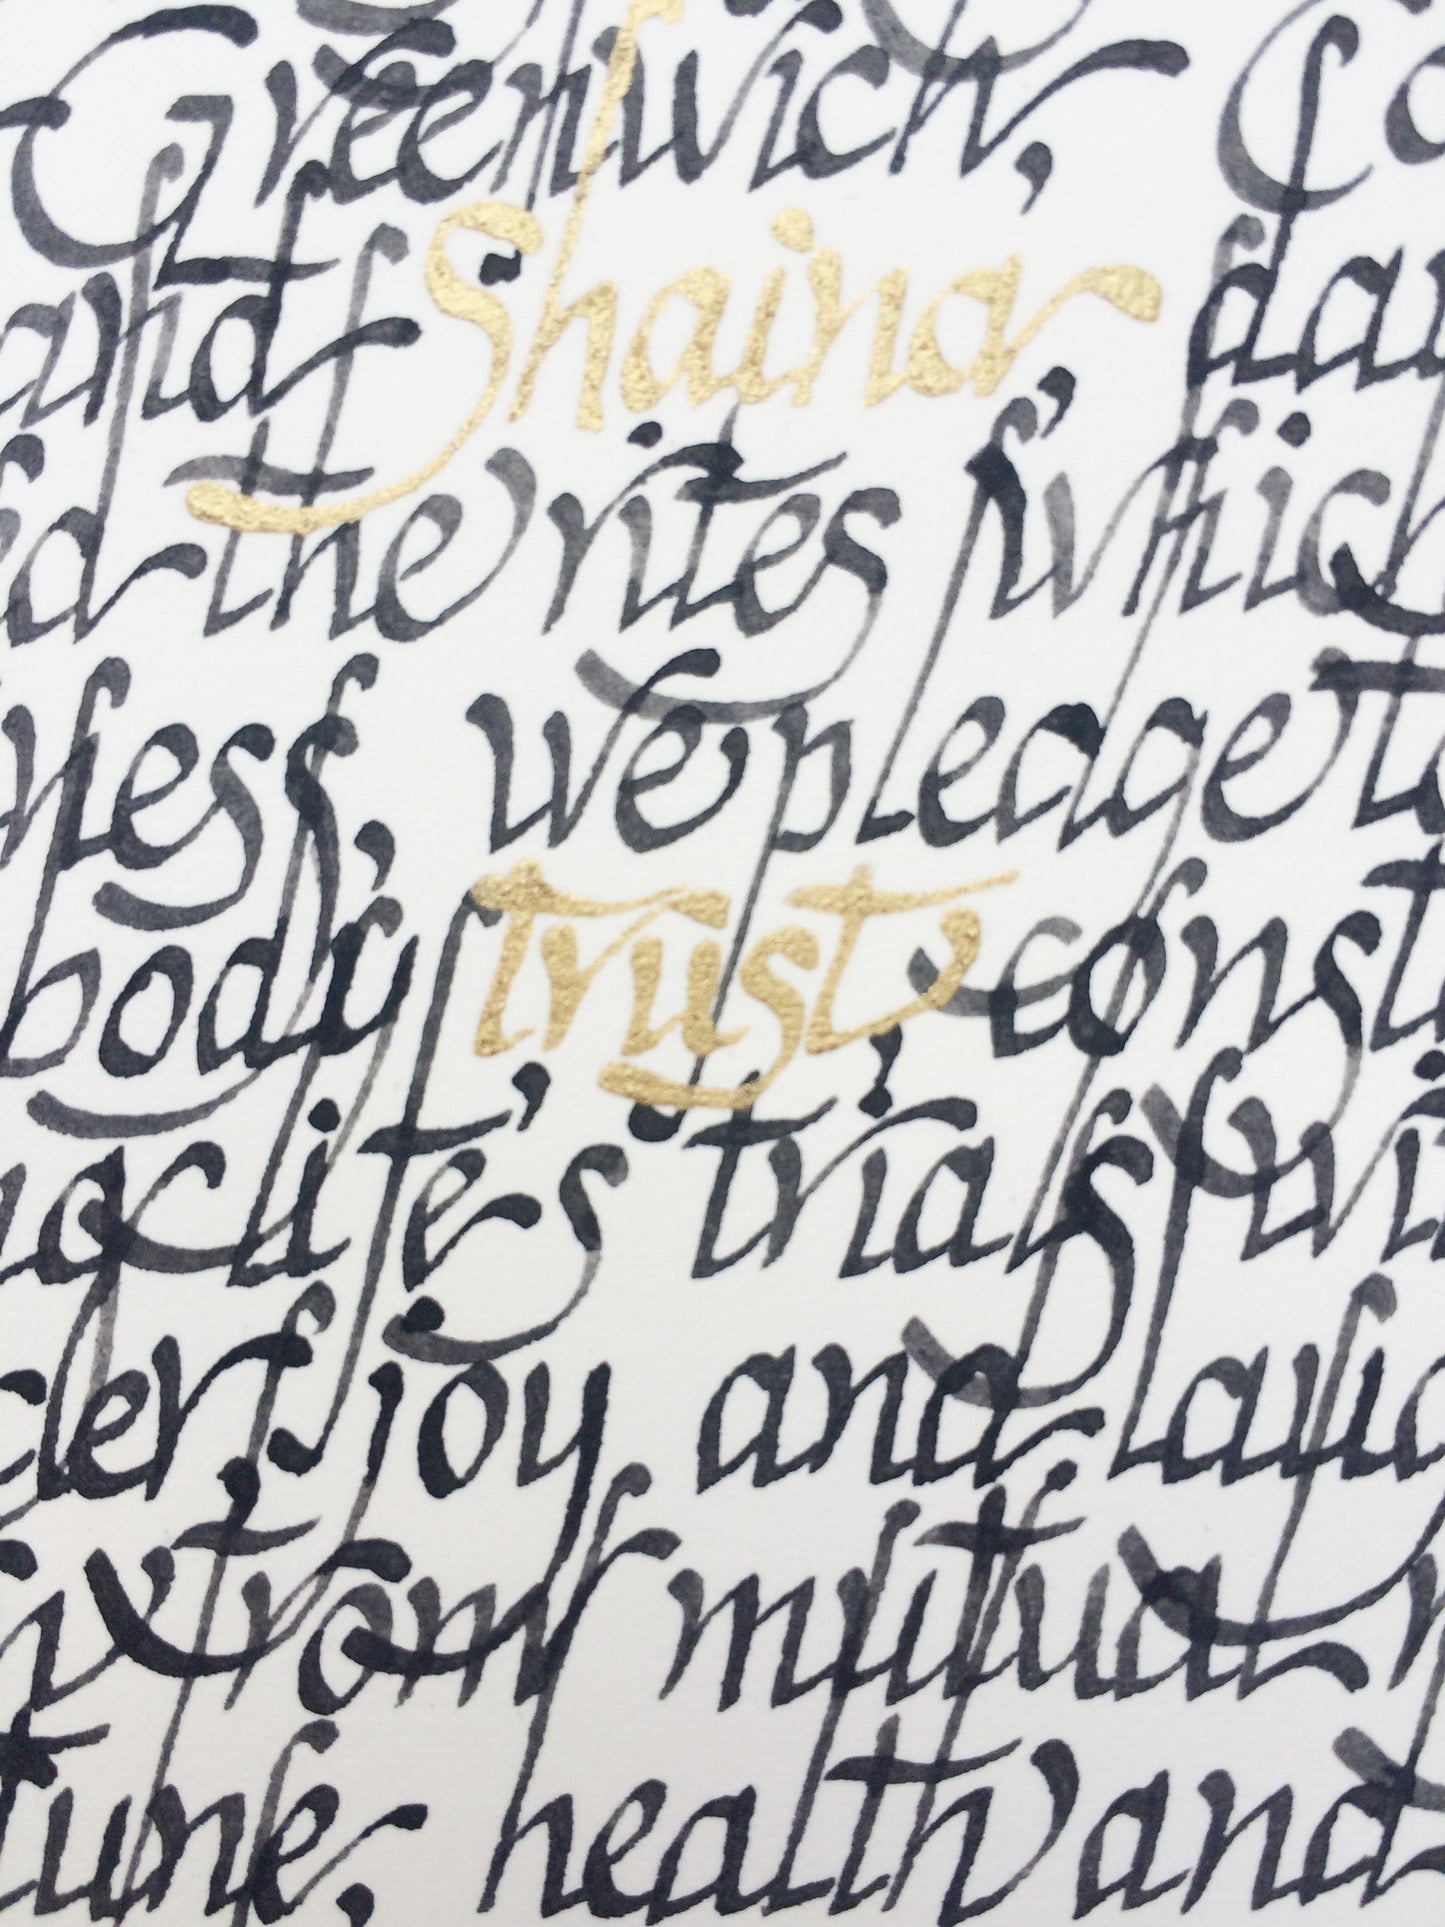 Greenwich, Co
and Shaina, dau
ed the rites which
ness, we pledge to
body, trust, const
ng life's trials wit
der, joy and laug
from mutual
tune, health and